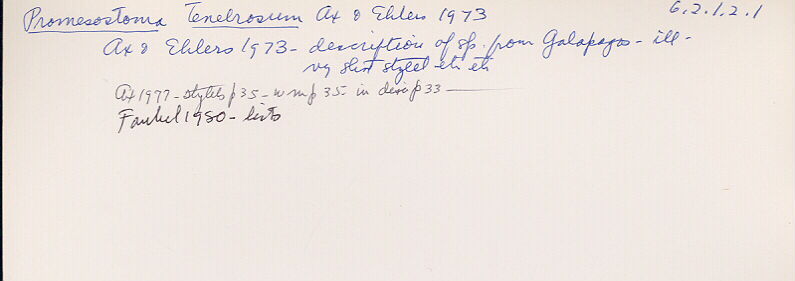 Promesostoma Tenebrosum Ax & Ehlers 1973 6.2.1.2.1
Ax & Ehlers 1973 - description of sp. from Galapagos - ill -
vy short stylet etc etc
Ax 1977 - stylets p 35 - w m p 35 - in desc p 33
Faubel 1980 - lists